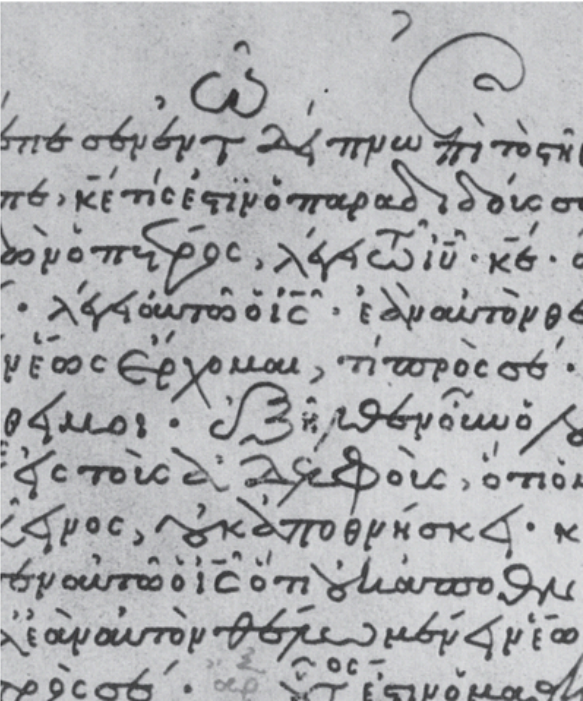 έπεσεν ἐν τ δείπνω ἐπὶ τὸ στῆ
πε, κ̅ε̅ τίς ἐστιν ὁ παραδιδούς σ
δὼν ὁ πέτρος, λέγει τῶ ι̅υ̅· κ̅ε̅·
· λέγει αὐτῶ ὁ ι̅ς̅· ἐὰν αὐτὸν θέ
μένειν ἕως ἔρχομαι, τί πρὸς σέ·
θει μοι· ἐξῆλθεν οὖν ὁ λό
εἰς τοὺς ἀδελφοὺς, ὅτι ὁ μ
κεῖνος, οὐκ ἀποθνήσκει· κ
πεν αὐτῶ ὁ ι̅ς̅ ὅτι οὐκ ἀποθνή
λ' ἐὰν αὐτὸν θέλω μένειν ἕω
πρὸς σέ· οὗτός ἐστιν ὁ μαθ